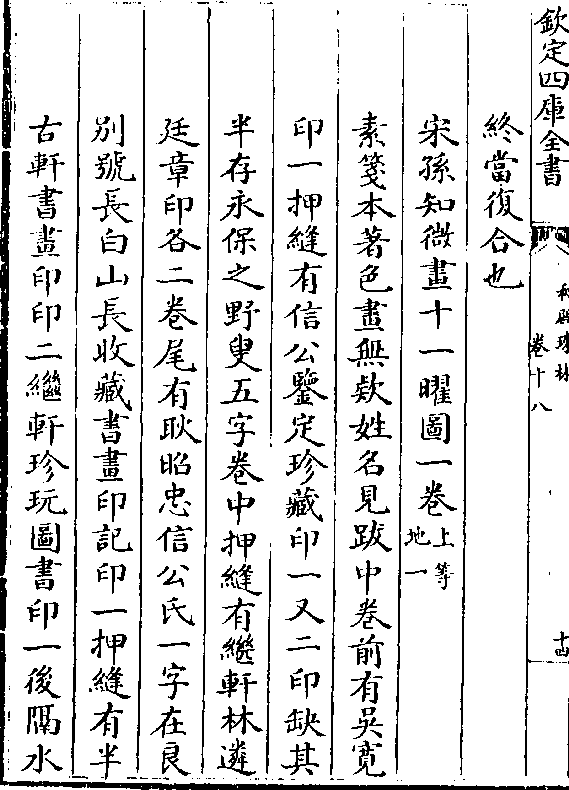 欽定四庫全書
秘殿珠林
卷十八
十四
終當復合也
宋孫知微畫十一曜圖一卷上等地一
素箋本著色畫無欵姓名見跋中卷前有吳寛
印一押縫有信公鑒定珍藏印一又二印缺其
半存永保之野叟五字卷中押縫有繼軒林遴
廷章印各二卷尾有耿昭忠信公氏一字在良
別號長白山長收藏書畫印記印一押縫有半
古軒書畫印印二繼軒珍玩圖書印一後隔水